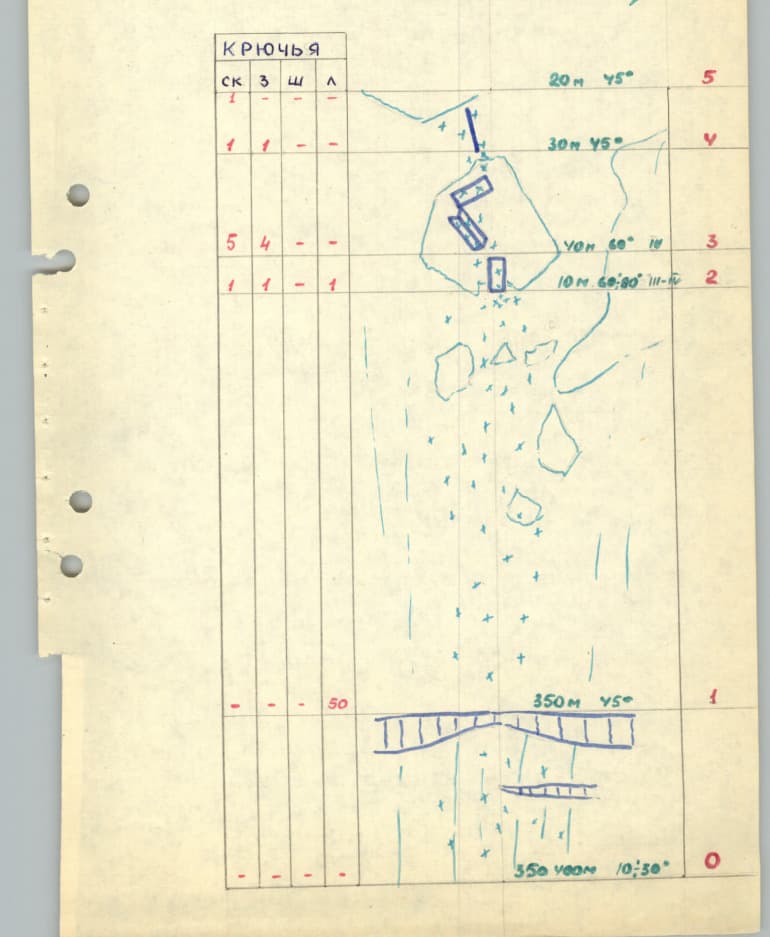 КРЮЧЬЯ
СК З Ш Л
20м 45° 5
1 - - -
1 1 - - 30м 45° 4
5 4 - - 40м 60° III 3
1 1 - 1 10м 60÷80° III-IV 2
- - - 50 350м 45° 1
- - - - 350 400м 10÷30° 0